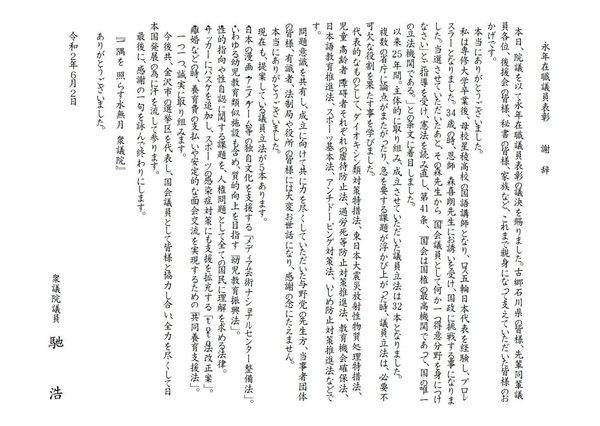 永年在職議員表彰　謝辞
本日、院議を以て永年在職議員表彰の議決を賜りました。古郷石川県の皆様、先輩同輩議
員各位、後援会の皆様、秘書の皆様、家族など、これまで親身になって支えていただいた皆様のお
かげです。
本当にありがとうございました。
私は専修大学卒業後、母校星稜高校の国語講師となり、ロス五輪日本代表を経験し、プロレ
スラーとなりました。34歳の時、恩師 森喜朗先生にお誘いを受け、国政に挑戦する事になりま
した。当選させていただいたあと、その森先生から「国会議員として何か一つ得意分野を身につけ
なさい」とご指導を受け、憲法を読み直し、第41条、「国会は国権の最高機関であつて、国の唯一
の立法機関である。」との条文に着目しました。
以来25年間。主体的に取り組み、成立させていただいた議員立法は32本となりました。
複数の省庁に論点がまたがったり、急を要する課題が浮かび上がった時、議員立法は、必要不
可欠な役割を果たす事を学びました。
代表的なものとして、ダイオキシン類対策特措法、東日本大震災放射性物質処理特措法、
児童 高齢者 障碍者それぞれの虐待防止法、過労死等防止対策推進法、教育機会確保法、
日本語教育推進法、スポーツ基本法、アンチドーピング対策法、いじめ防止対策推進法などで
す。
問題意識を共有し、成立に向けて共に力を尽くしていただいた与野党の先生方、当事者団体
の皆様、有識者、法制局や役所の皆様には大変お世話になり、感謝の念にたえません。
本当にありがとうございました。
現在も、提案している議員立法が5本あります。
日本の漫画 アニメ ゲーム等の独自文化を支援する「メディア芸術ナショナルセンター整備法」。
いわゆる幼児教育類似施設も含め、質的向上を目指す「幼児教育振興法」。
性的指向や性自認に関する課題を、人権問題として全ての国民に理解を求める法律。
サッカーにバスケを追加し、スポーツの感染症対策にも支援を拡充する「toto法改正案」。
離婚などの時、養育費の支払いや安定的な面会交流を実現するための「共同養育支援法」。
一つ一つ、誠実に取り組みます。
今後共、金沢市の選挙区を代表し、国会議員として皆様と協力し合い、全力を尽くして日
本国発展の為に汗を流して参ります。
最後に、感謝の一句を詠んで終わりにします。
『一隅を 照らす水無月 衆議院』
ありがとうございました。
令和2年6月2日
衆議院議員　馳　浩